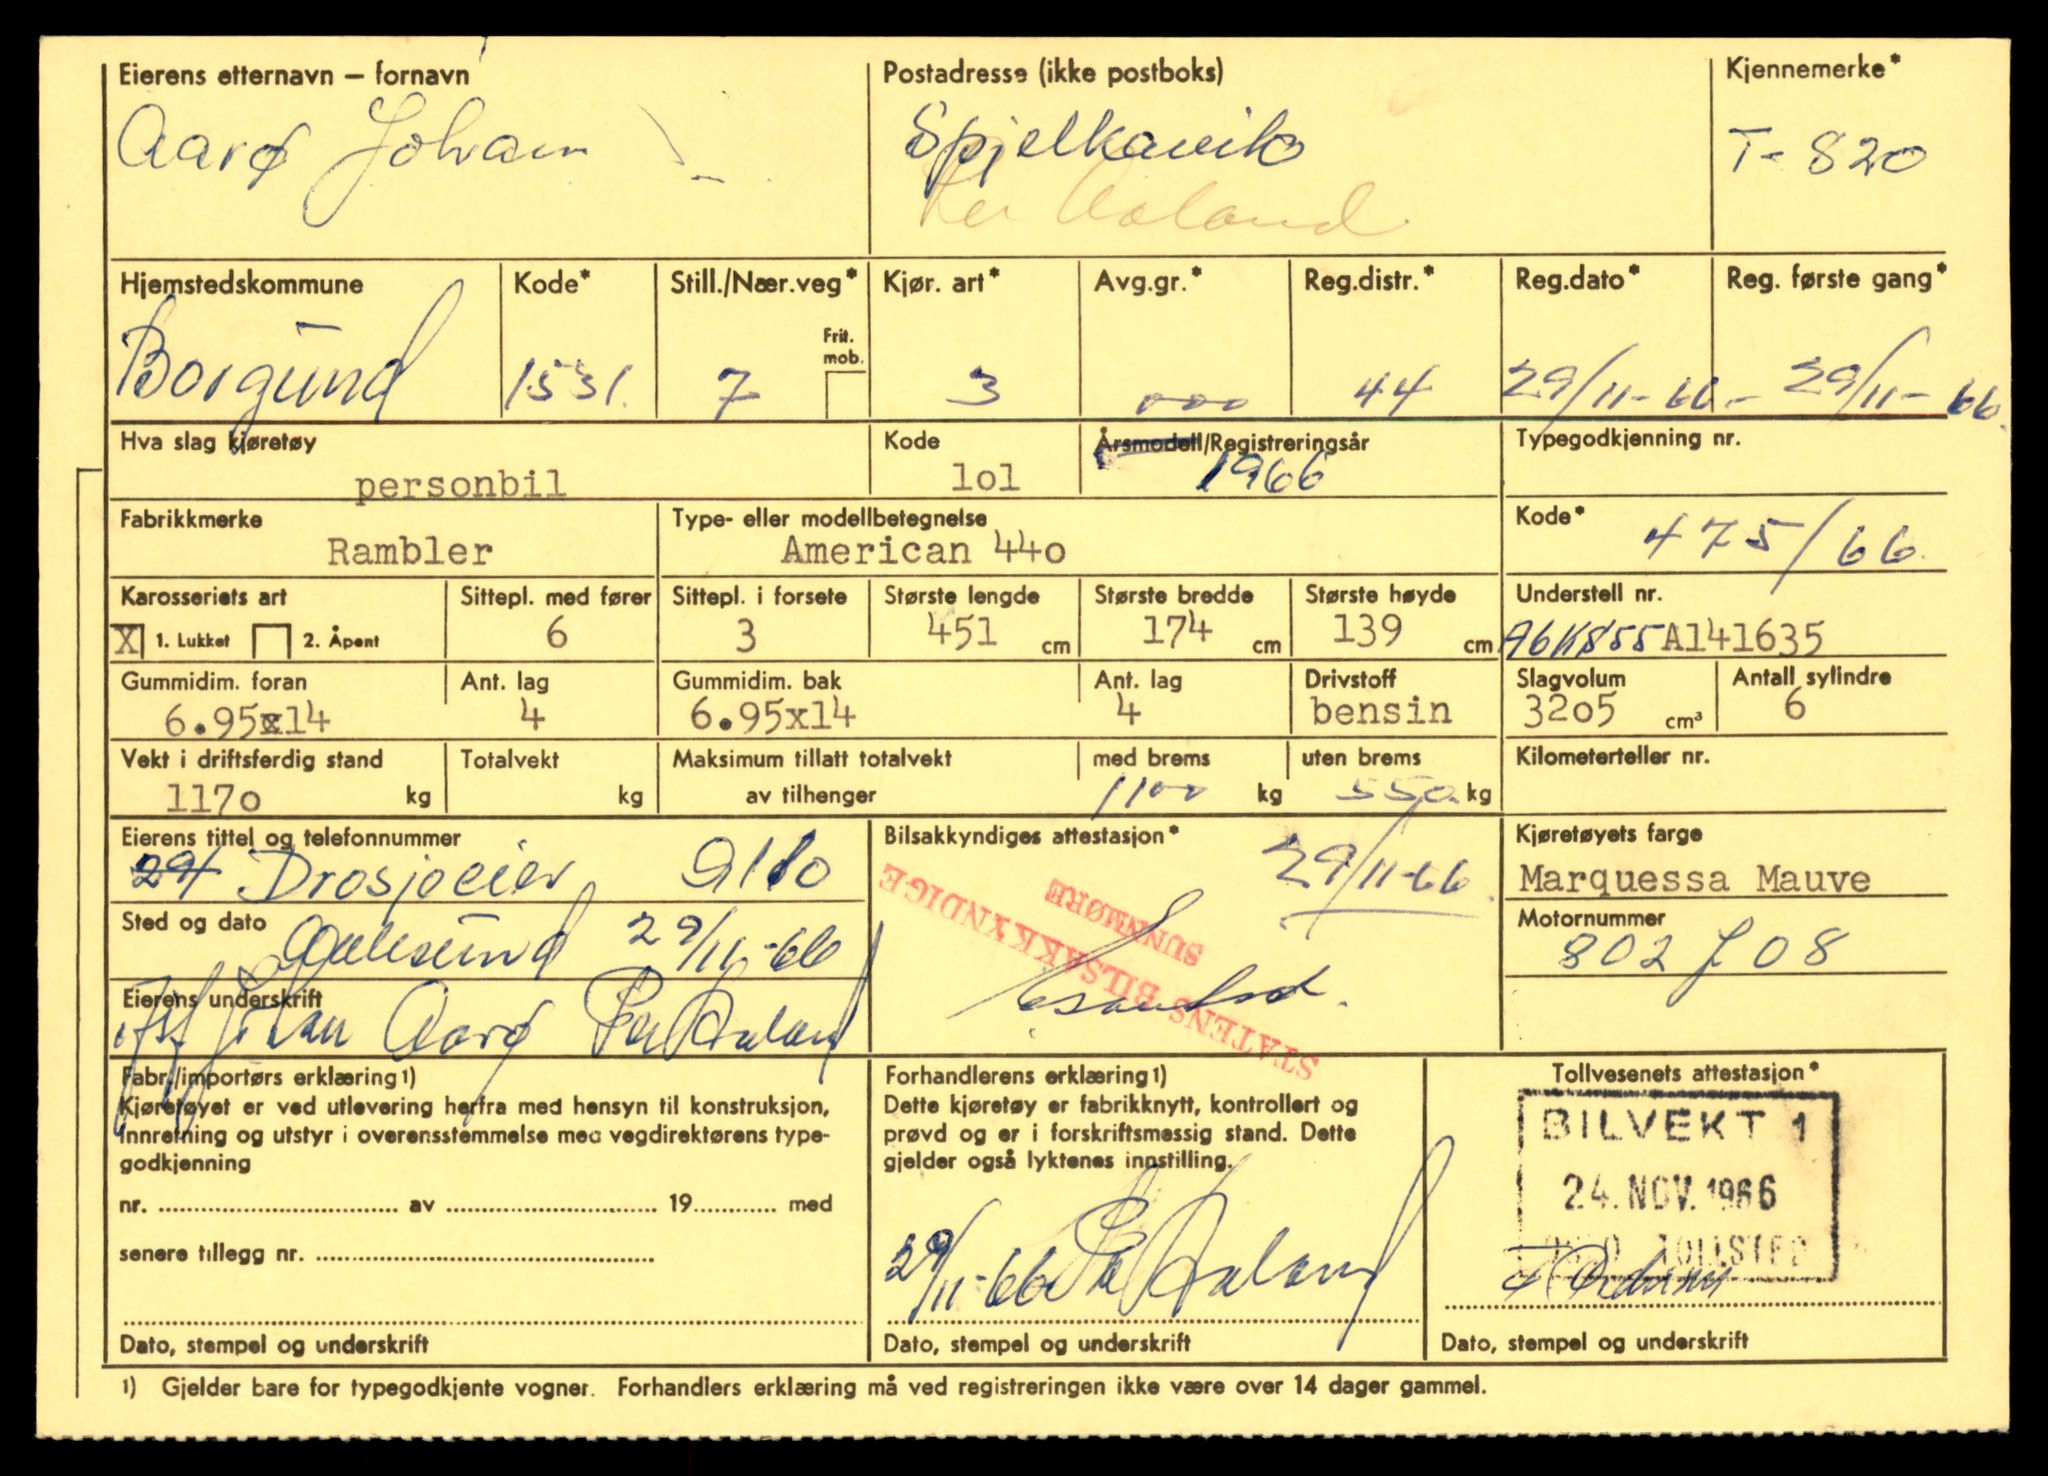 Eierens etternavn – fornavn Postadresse (ikke postboks) Kjennemerke*
Aarø Johan Spjelkavik T-820
Per Aaland
Hjemstedskommune Kode* Still./Nær.veg* Kjør. art* Avg.gr.* Reg.distr.* Reg.dato* Reg. første gang*
Frit. mob.
Borgund 1531. 7 3 000 44 29/11-66- 29/11-66.
Hva slag kjøretøy Kode Årsmodell/Registreringsår Typegodkjenning nr.
personbil 1o1 1966
Fabrikkmerke Type- eller modellbetegnelse Kode*
Rambler American 44o 475/66.
Karosseriets art Sittepl. med fører Sittepl. i forsete Største lengde Største bredde Største høyde Understell nr.
X 1. Lukket 2. Åpent 6 3 451 cm 174 cm 139 cm A6K855 A141635
Gummidim. foran Ant. lag Gummidim. bak Ant. lag Drivstoff Slagvolum Antall sylindre
6.95x14 4 6.95x14 4 bensin 32o5 cm³ 6
Vekt i driftsferdig stand Totalvekt Maksimum tillatt totalvekt med brems uten brems Kilometerteller nr.
117o kg kg av tilhenger 1100 kg 550. kg
Eierens tittel og telefonnummer Bilsakkyndiges attestasjon* Kjøretøyets farge
24 Drosjeeier 9110 29/11-66. Marquessa Mauve
STATENS BILSAKKYNDIGE
SUNNMØRE
Sted og dato Motornummer
Aalesund 29/11-66 802 J 08
Eierens underskrift
Johan Aarø Per Aaland
Fabr./importørs erklæring1) Forhandlerens erklæring1) Tollvesenets attestasjon*
Kjøretøyet er ved utlevering herfra med hensyn til konstruksjon,
innretning og utstyr i overensstemmelse med vegdirektørens type-
godkjenning
nr. av 19 med
senere tillegg nr.
Dato, stempel og underskrift
Dette kjøretøy er fabrikknytt, kontrollert og
prøvd og er i forskriftsmessig stand. Dette
gjelder også lyktenes innstilling.
29/11-66 Per Aaland
Dato, stempel og underskrift
BILVEKT 1
24. NOV. 1966
TOLLSTED
Dato, stempel og underskrift
1) Gjelder bare for typegodkjente vogner. Forhandlers erklæring må ved registreringen ikke være over 14 dager gammel.